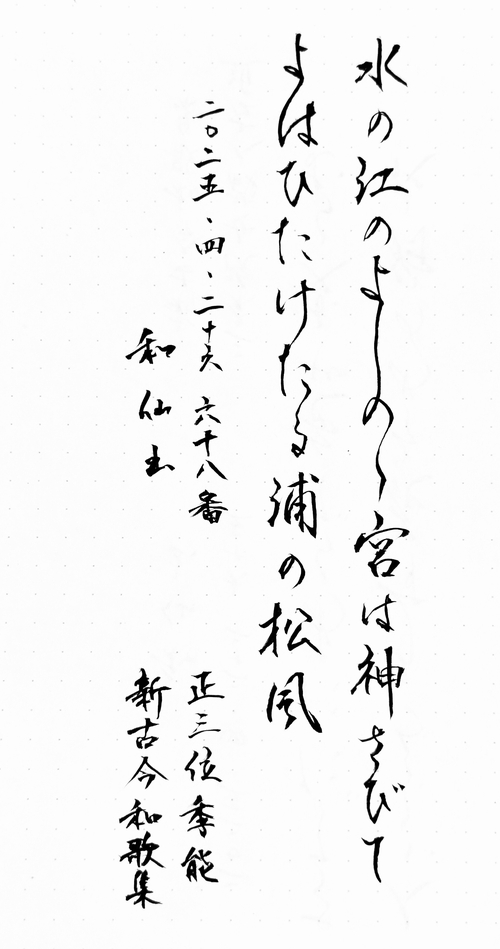 水の江のよしのゝ宮は神さびて
よはひたけたる浦の松風
二〇二五、四、二十六 六十八番
正三位季能
和仙出
新古今和歌集